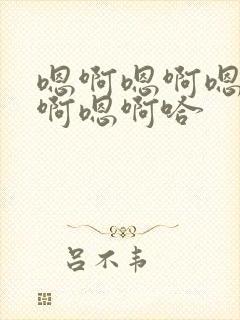 嗯啊嗯啊嗯
啊嗯啊哈
吕不韦